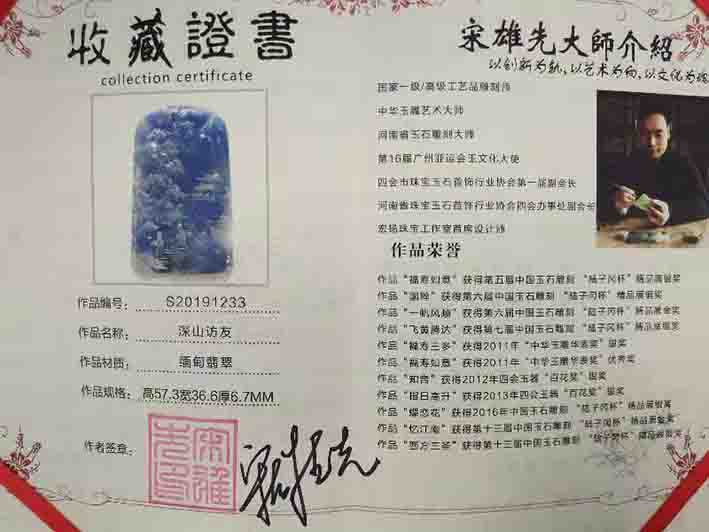 收藏證書
collection certificate
作品编号: S20191233
作品名称: 深山访友
作品材质: 缅甸翡翠
作品规格: 高57.3宽36.6厚6.7MM
作者签章:
宋雄先大師介紹
以创新为轨,以艺术为向,以文化为魂
国家一级/高级工艺品雕刻师
中华玉雕艺术大师
河南省玉石雕刻大师
第16届广州亚运会玉文化大使
四会市珠宝玉石首饰行业协会第一届副会长
河南省珠宝玉石首饰行业协会四会办事处副会长
宏扬珠宝工作室首席设计师
作品荣誉
作品“福寿如意”获得第五届中国玉石雕刻 “陆子冈杯”精品展银奖
作品“国粹”获得第六届中国玉石雕刻 “陆子冈杯”精品展银奖
作品“一帆风顺”获得第六届中国玉石雕刻 “陆子冈杯”精品展金奖
作品“飞黄腾达”获得第七届中国玉石雕刻 “陆子冈杯”精品展银奖
作品“福寿三多”获得2011年“中华玉雕华表奖”银奖
作品“福寿如意”获得2011年“中华玉雕华表奖”优秀奖
作品“知音”获得2012年四会玉器“百花奖”银奖
作品“指日高升”获得2013年四会玉器“百花奖”银奖
作品“蝶恋花”获得2016年中国玉石雕刻 “陆子冈杯”精品展铜奖
作品“忆江南”获得第十三届中国玉石雕刻 “陆子冈杯”精品展金奖
作品“西方三圣”获得第十三届中国玉石雕刻 “陆子冈杯”精品展银奖